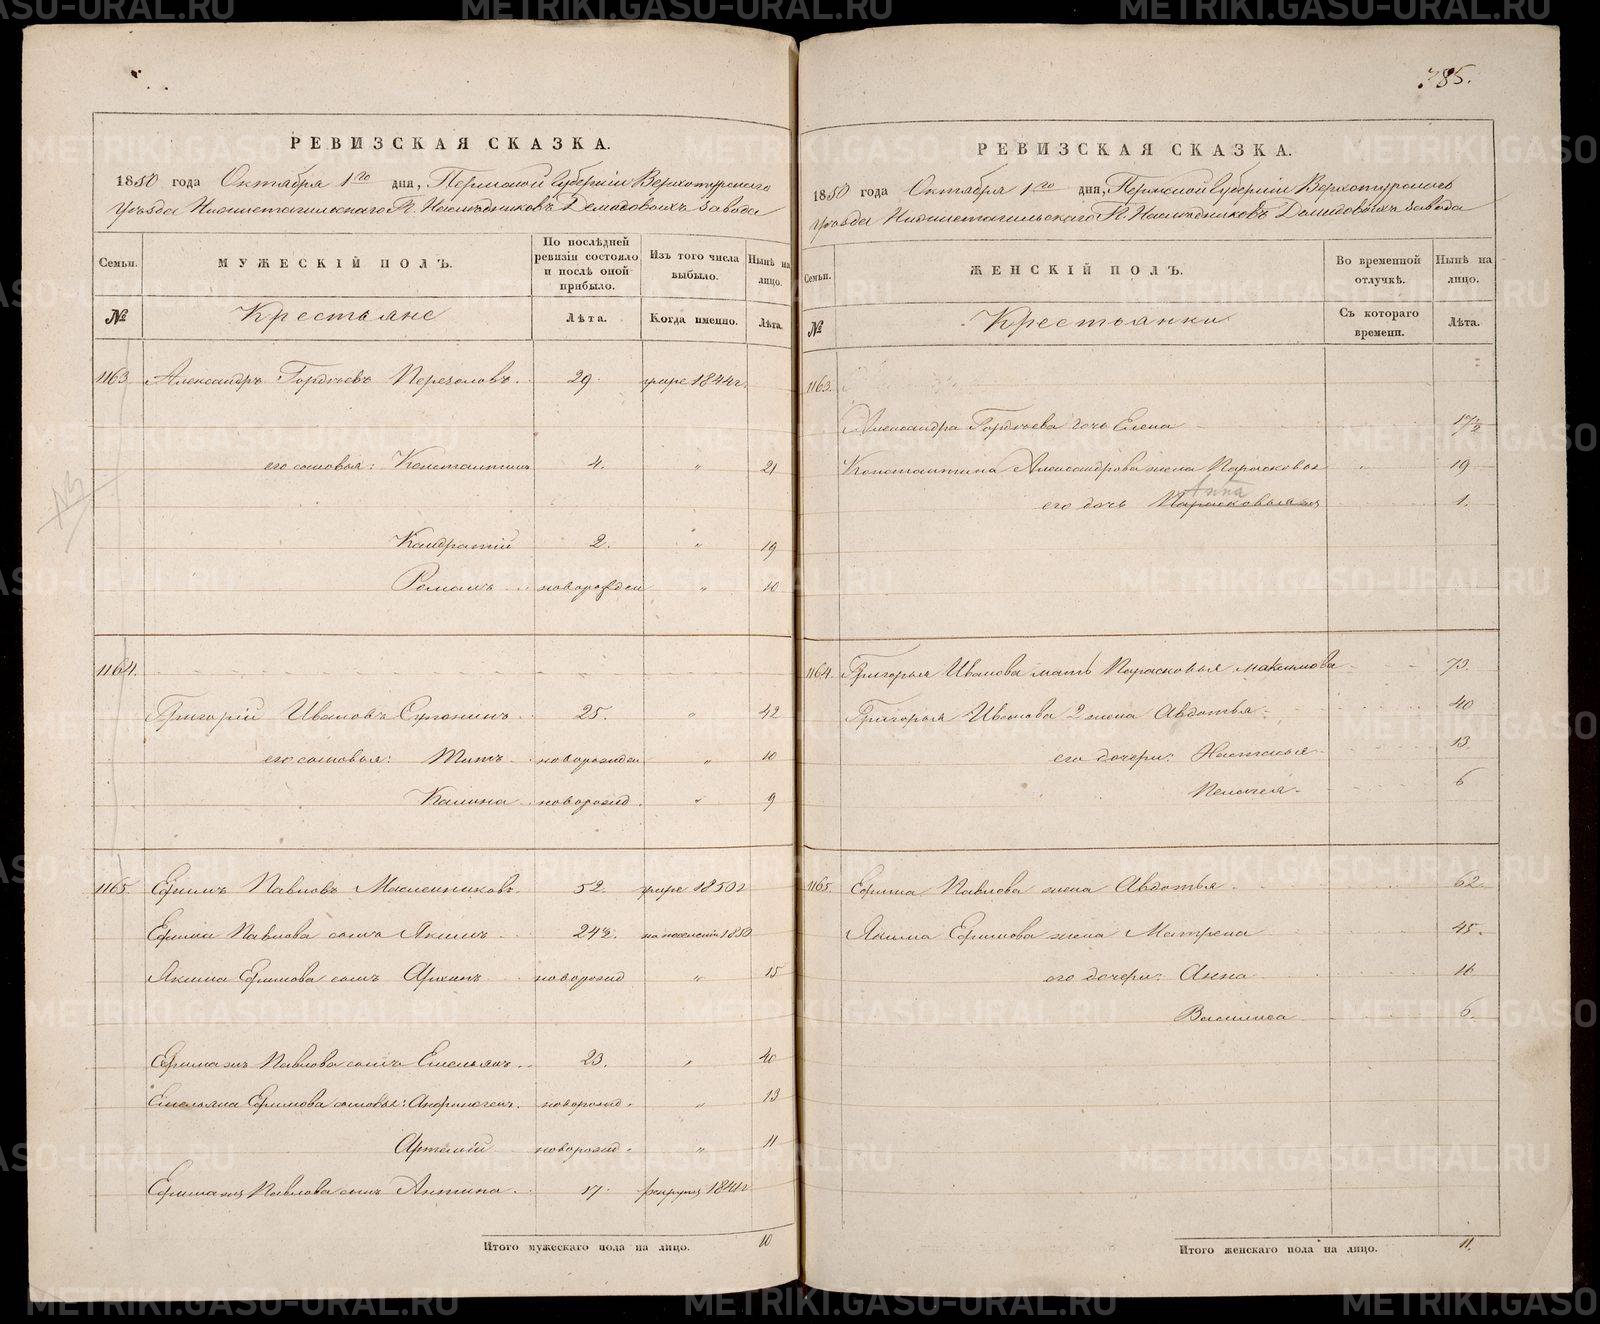 785.
РЕВИЗСКАЯ СКАЗКА.
1850 года Октября 1го дня, Пермской Губерніи Верхотурскаго
Уѣзда Нижнетагильскаго Г. Наслѣдниковъ Демидовыхъ завода
Семьи.
МУЖЕСКІЙ ПОЛЪ.
По послѣдней ревизіи состояло и послѣ оной прибыло.
Изъ того числа выбыло.
Нынѣ на лицо.
№
Крестьяне
Лѣта.
Когда именно.
Лѣта.
1163 Александръ Гордѣевъ 29. умре 1844г.
его сыновья: Константинъ 4. " 21
Кондратій 2. " 19
Романъ новорожден " 10
1164.
Григорій Ивановъ 25. " 42
его сыновья: Титъ новорожден " 10
Калина новорожд. " 9
1165. Ефимъ Павловъ Масленниковъ 52. умре 1850г
Ефима Павлова сынъ Якимъ 24½. на поселеніи 1850
Якима Ефимова сынъ Архипъ новорожд " 15
Ефима жъ Павлова сынъ Емельянъ 23. " 40
Емельяна Ефимова сыновья: Анфиногенъ новорожд. " 13
Артемій новорожд. " 11
Ефима жъ Павлова сынъ Антипа 17. рекрутъ 1841г
Итого мужескаго пола на лицо. 10
РЕВИЗСКАЯ СКАЗКА.
1850 года Октября 1го дня, Пермской Губерніи Верхотурскаго
Уѣзда Нижнетагильскаго Г. Наслѣдниковъ Демидовыхъ завода
Семьи.
ЖЕНСКІЙ ПОЛЪ.
Во временной отлучкѣ.
Нынѣ на лицо.
№
Крестьянки
Съ котораго времени.
Лѣта.
1163.
Александра Гордѣева дочь Елена 17½
Константина Александрова жена Парасковья " 19
Анна
его дочь Парасковья 1.
1164. Григорья Иванова мать Парасковья Максимова 73.
Григорья Иванова 2 жена Авдотья 40
его дочери: Настасья 13.
Пелагея 6
1165. Ефима Павлова жена Авдотья 62.
Якима Ефимова жена Матрена 45.
его дочери: Анна 11
Василиса 6.
Итого женскаго пола на лицо. 11.
METRIKI.GASO-URAL.RU